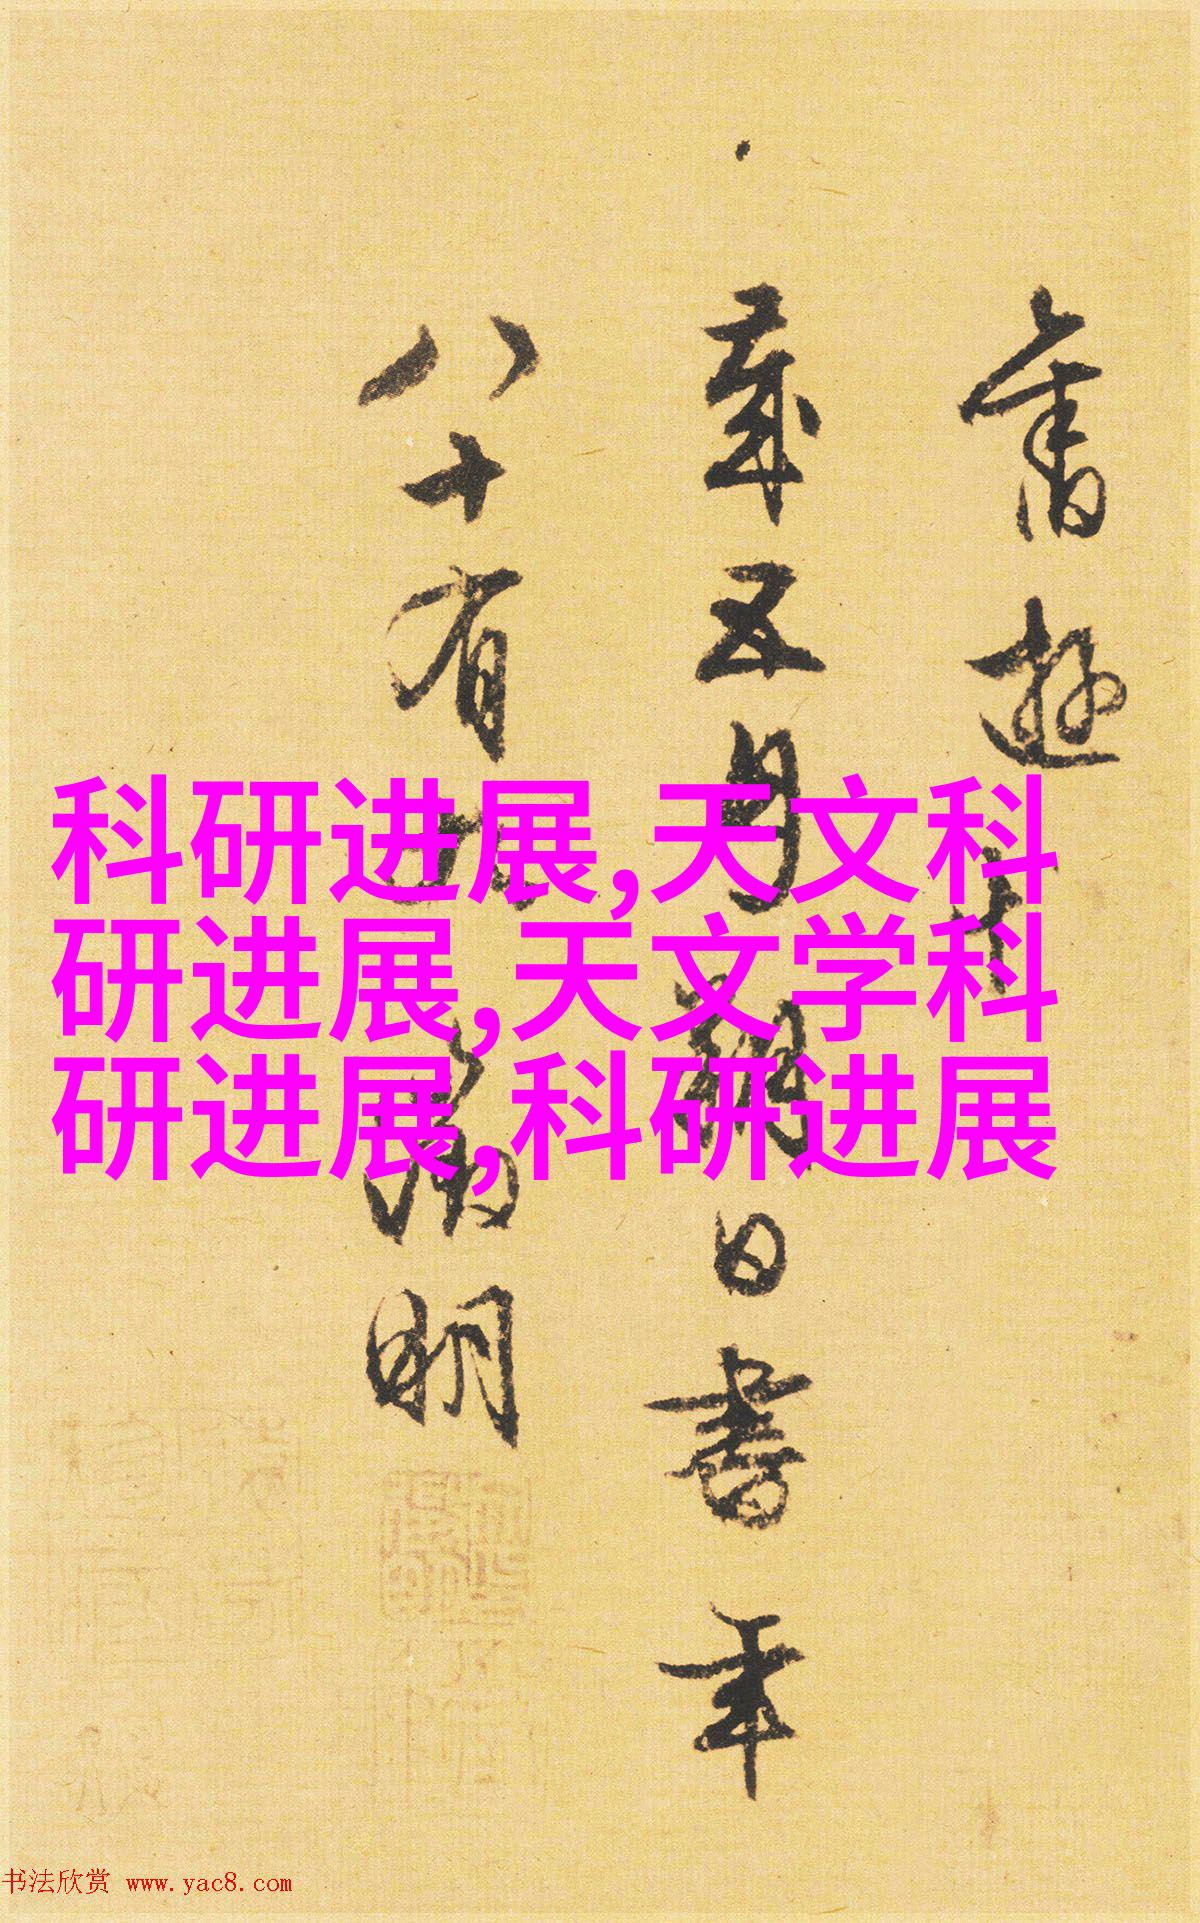 舊遊
歲五月朔日書年
八十有 徵明
科研进展,天文科
研进展,天文学科
研进展,科研进展
书法欣赏 www.yac8.com